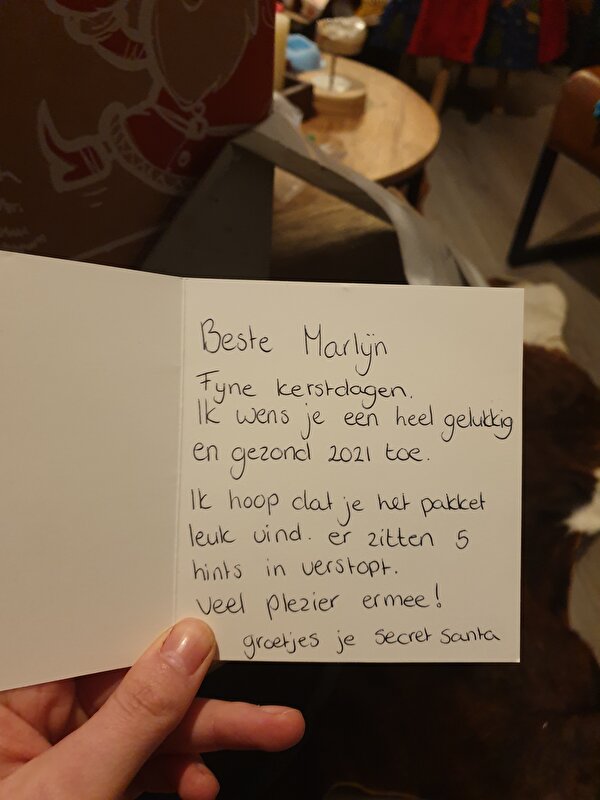 Beste Marlijn
Fyne kerstdagen.
Ik wens je een heel gelukkig
en gezond 2021 toe.
Ik hoop dat je het pakket
leuk vind. er zitten 5
hints in verstopt.
veel plezier ermee!
groetjes je secret santa